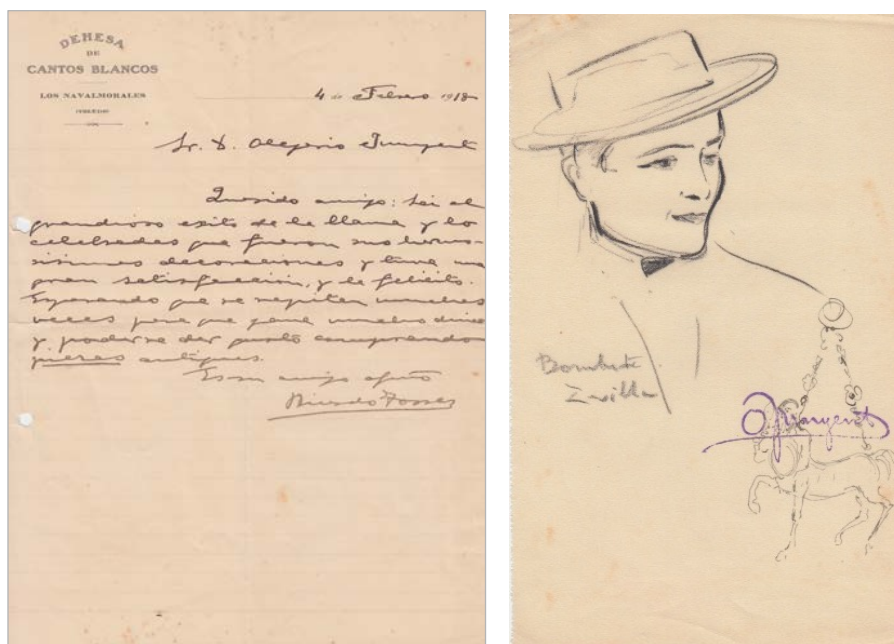 DEHESA
DE
CANTOS BLANCOS
LOS NAVALMORALES
(TOLEDO)
4 de Febrero 1918
Sr. D. Olegario Junyent
Querido amigo: Lei el
grandioso exito de la llama y lo
celebradas que fueron sus hermo-
sisimas decoraciones y tuve una
gran satisfacción, y le felicito.
Esperando que se repitan muchas
veces para que gane mucho dinero
y poderse dar gusto comprando
piezas antiguas.
Es su amigo affmo
Ricardo Torres
Bombita
Sevilla
O Junyent